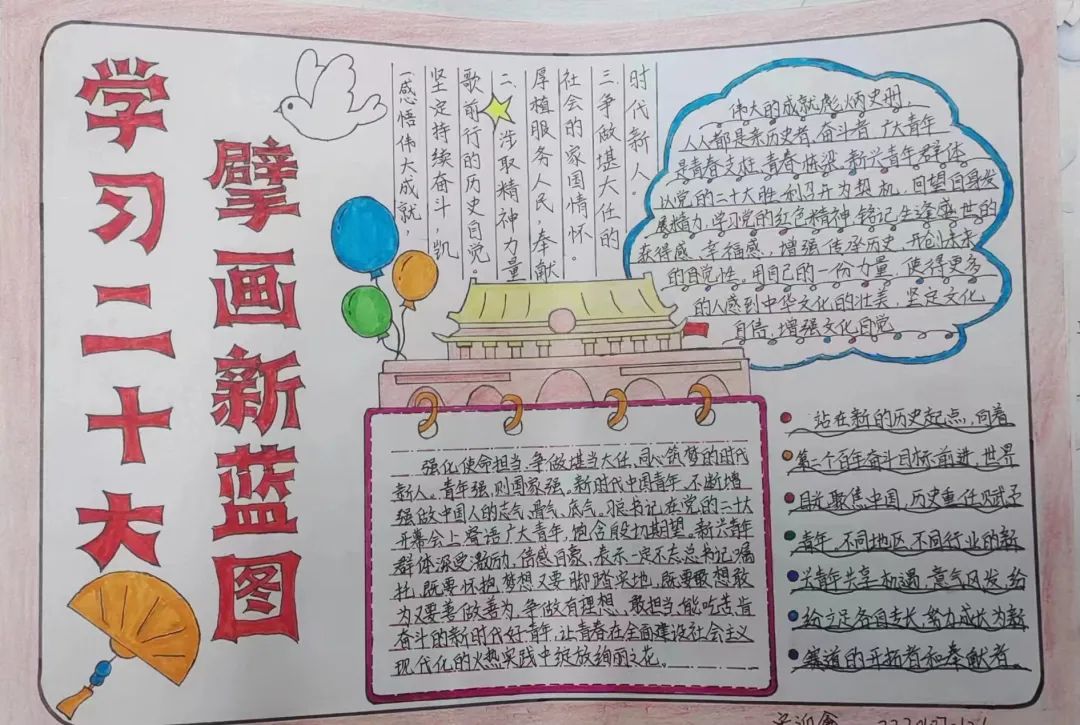 学习二十大
擘画新蓝图
时代新人。
三.争做堪大任的
社会的家国情怀。
厚植服务人民,奉献
二.涉取精神力量
歌前行的历史自觉。
坚定持续奋斗,凯
一感悟伟大成就,
伟大的成就彪炳史册,
人人都是亲历者,奋斗者 广大青年
是青春支柱 青春栋梁 新兴青年群体
以党的二十大胜利召开为契机,回望自身发
展精力,学习党的红色精神 铭记生逢盛世的
获得感、幸福感,增强传承历史,开创未来
的自觉性。用自己的一份力量,使得更多
的人感到中华文化的壮美,坚定文化
自信,增强文化自觉
强化使命担当,争做堪当大任,同心筑梦的时代
新人。青年强,则国家强。新时代中国青年,不断增
强做中国人的志气,骨气,底气。习总书记在党的二十大
开幕会上寄语广大青年,饱含殷切期望。新兴青年
群体深受激励,倍感自豪,表示一定不忘总书记嘱
托,既要怀抱梦想又要脚踏实地,既要敢想敢
为又要善做善为,争做有理想,敢担当,能吃苦肯
奋斗的新时代好青年,让青春在全面建设社会主义
现代化的火热实践中绽放绚丽之花。
站在新的历史起点,向着
第二个百年奋斗目标前进,世界
目光聚焦中国,历史重任赋予
青年,不同地区,不同行业的新
兴青年共享机遇,意气风发,纷
纷立足各自专长,努力成长为新
赛道的开拓者和奉献者。